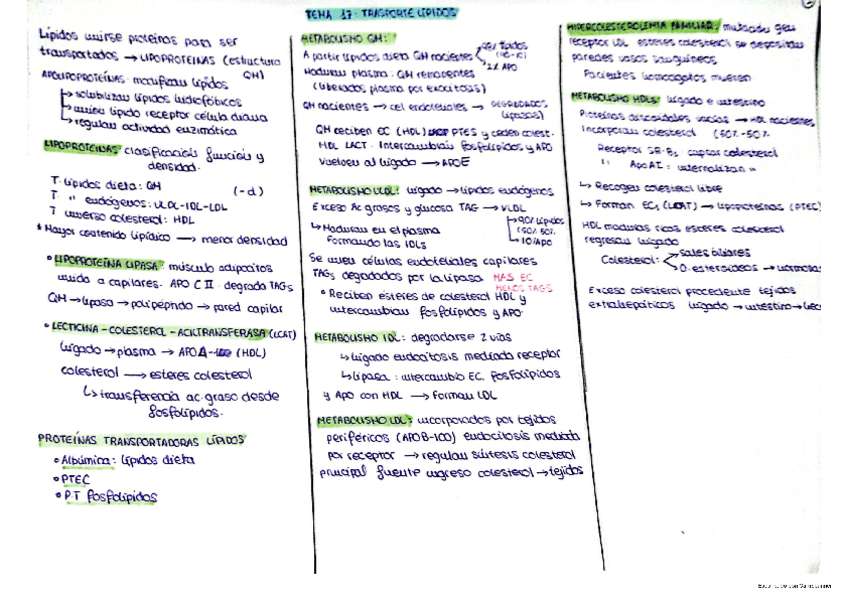 TEMA 17: TRASPORTE LÍPIDOS
Lípidos unirse proteínas para ser
transportados → LIPOPROTEINAS (estructura
QH)
APOLIPOPROTEÍNAS: modifican lípidos
↳ solubilizan lípidos hidrofóbicos
↳ unión lípido receptor célula diana
↳ regulan actividad enzimática
LIPOPROTEINAS: clasificación función y
densidad.
T. lípidos dieta: QM (-d)
T. " endógenos: VLDL-IDL-LDL
T inverso colesterol: HDL
* Mayor contenido lipídico → menor densidad
• LIPOPROTEÍNA LIPASA: músculo adipocitos
unido a capilares. APO C II. degrada TAGs
QM → lipasa → polipéptido → pared capilar
• LECTICINA-COLESTEROL-ACILTRANSFERASA (LCAT)
hígado → plasma → APO A (HDL)
colesterol → esteres colesterol
↳ transferencia ac. graso desde
fosfolípidos.
PROTEÍNAS TRANSPORTADORAS LÍPIDOS
• Albúmina: lípidos dieta
• PTEC
• P.T fosfolípidos
METABOLISMO QM:
A partir lípidos dieta QM nacientes
2% APO
Maduran plasma: QM remanentes
(liberados plasma por exocitosis)
QM nacientes → cel endoteliales → DEGRADADOS
(lipasas)
QM reciben EC (HDL) PTES y ceden colest.
HDL LCAT. Intercambian fosfolípidos y APO
Vuelven al hígado → APOE
METABOLISMO VLDL: hígado → lípidos endógenos
Exceso Ac grasos y glucosa TAG → VLDL
↳ 90% lípidos
(50% 50%)
↳ 10% APO
↳ Maduran en el plasma
Formando las IDLs
Se unen células endoteliales capilares
TAGs degradados por la lipasa MAS EC
MENOS TAGS
• Reciben esteres de colesterol HDL y
intercambian fosfolípidos y APO
METABOLISMO IDL: degradarse 2 vías
↳ hígado endocitosis mediada receptor
↳ lipasa: intercambio EC, fosfolípidos
y Apo con HDL → Forman LDL
METABOLISMO LDL: incorporados por tejidos
periféricos (APOB-100) endocitosis mediada
por receptor → regulan síntesis colesterol
principal fuente ingreso colesterol → tejidos
HIPERCOLESTEROLEMIA FAMILIAR: mutación gen
receptor LDL esteres colesterol se depositan
paredes vasos sanguíneos
Pacientes homocigotos mueren
METABOLISMO HDLs: hígado e intestino
Proteínas discoidales vacías → HDL nacientes
Incorporan colesterol (50% - 50%
Receptor SR-B1 captar colesterol
" Apo AI: internalizan "
↳ Recogen colesterol libre
↳ Forman ECs (LCAT) → lipoproteínas (PTEC)
HDL maduras ricas esteres colesterol
regresan hígado
Colesterol: sales biliares
O. esteroideos → hormonas
Exceso colesterol procedente tejidos
extrahepáticos hígado → intestino →